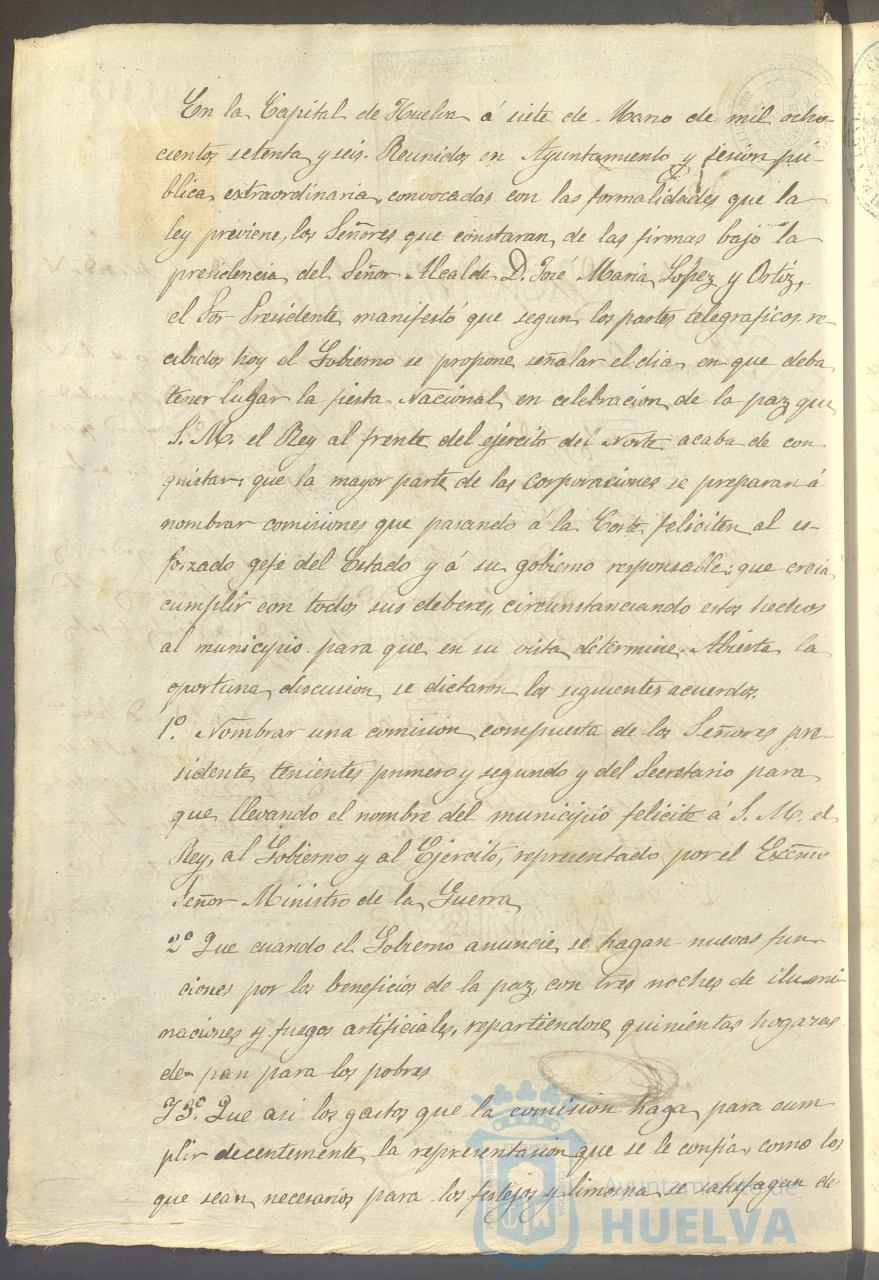 En la Capital de Huelva á siete de Marzo de mil ocho-
cientos setenta y seis. Reunidos en Ayuntamiento y sesion pu-
blica extraordinaria, convocadas con las formalidades que la
ley previene, los Señores que constaran de las firmas bajo la
presidencia del Señor Alcalde D. José Maria Lopez y Ortiz,
el Sor Presidente manifestó que segun los partes telegraficos re-
cibidos hoy el Gobierno se propone señalar el dia en que deba
tener lugar la fiesta Nacional en celebracion de la paz que
S. M. el Rey al frente del ejercito del Norte acaba de con
quistar: que la mayor parte de las corporaciones se preparan á
nombrar comisiones que pasando á la Corte feliciten al es-
forzado gefe del Estado y á su gobierno responsable: que creia
cumplir con todos sus deberes, circunstanciando estos hechos
al municipio para que en su vista determine. Abierta la
oportuna discusion, se dictaron los siguientes acuerdos.
1º. Nombrar una comision compuesta de los Señores pre-
sidente, tenientes primero y segundo y del Secretario para
que llevando el nombre del municipio felicite á S. M. el
Rey, al Gobierno y al Ejercito, representado por el Excmo
Señor Ministro de la Guerra
2º Que cuando el Gobierno anuncie, se hagan nuevas fun-
ciones por los beneficios de la paz, con tres noches de ilumi-
naciones y fuegos artificiales, repartiendose quinientas hogazas
de pan para los pobres
Y 3º. Que asi los gastos que la comision haga para cum
plir decentemente la representacion que se le confia, como los
que sean necesarios para los festejos y limosna se satisfagan de
Ayuntamiento de
HUELVA